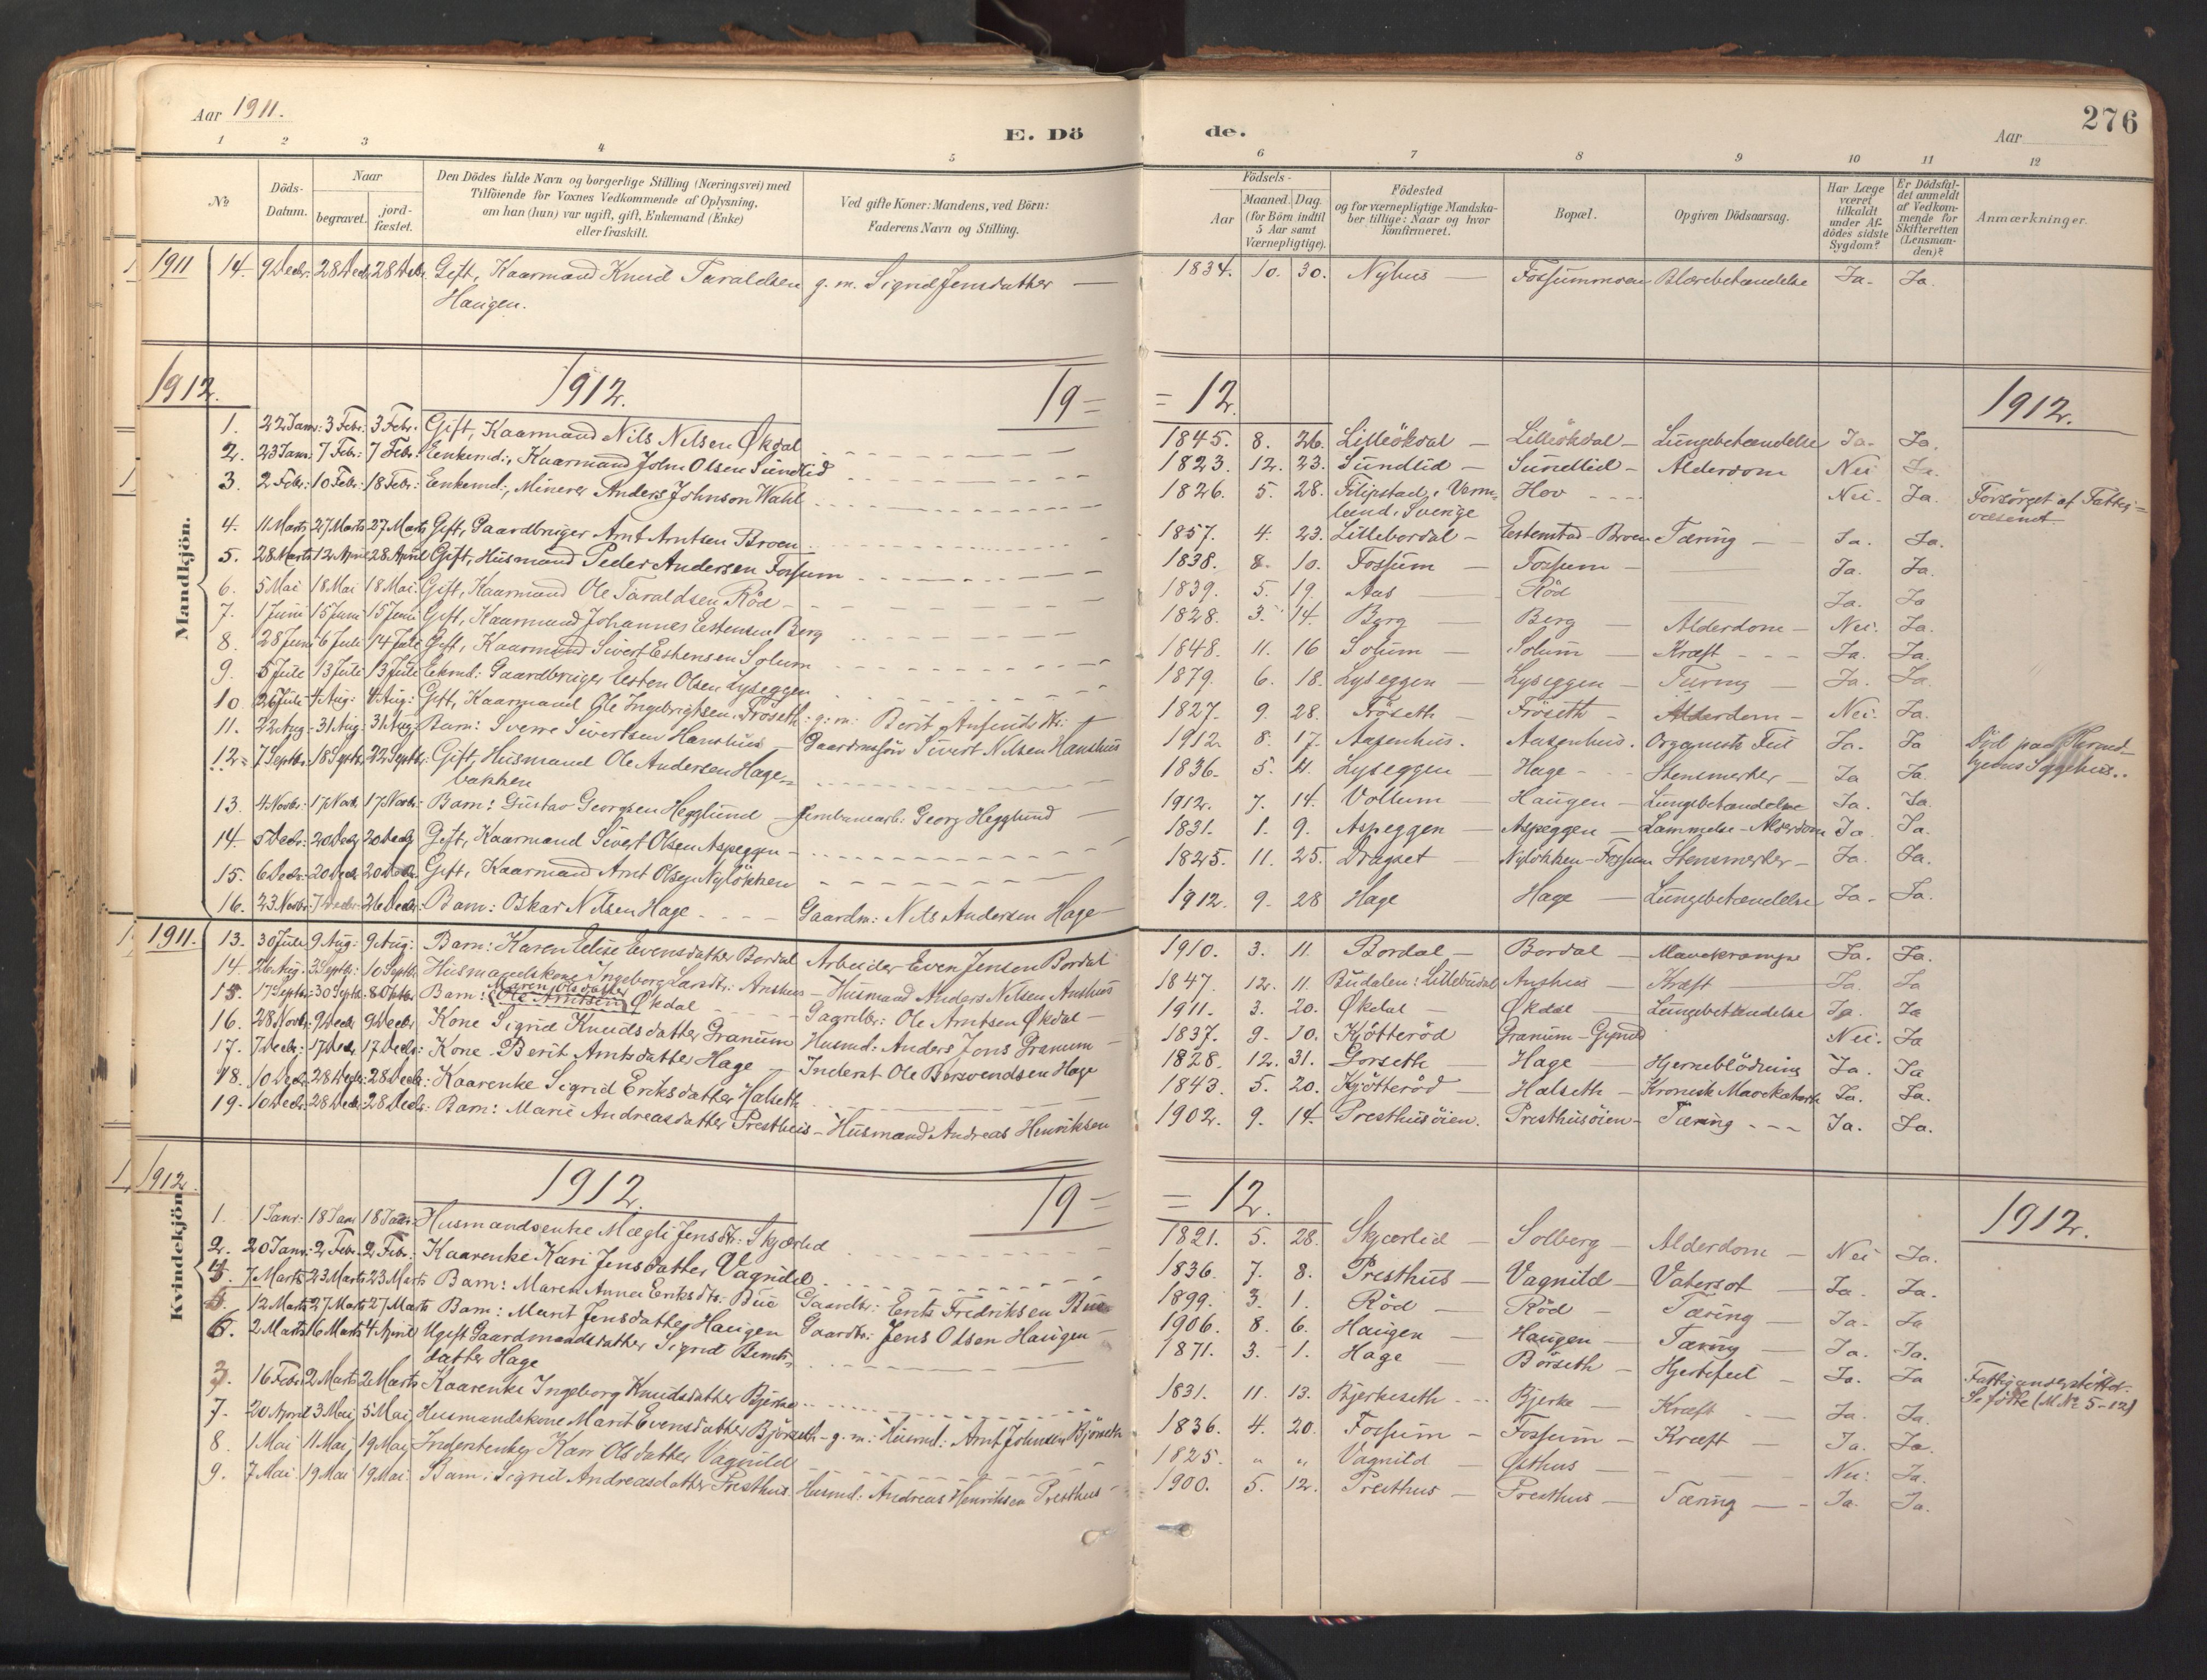 Aar 1911.
E. Dö
de.
Aar
276
1 2 3 4 5
6 7 8 9 10 11 12
№
Döds-Datum.
Naar
begravet.
jord-fæstet.
Den Dödes fulde Navn og borgerlige Stilling (Næringsvei) med
Tilföiende for Voxnes Vedkommende af Oplysning,
om han (hun) var ugift, gift, Enkemand (Enke)
eller fraskilt.
Ved gifte Koner: Mandens, ved Börn:
Faderens Navn og Stilling.
Födsels-
Aar
Maaned. Dag.
(for Börn indtil
5 Aar samt
Værnepligtige).
Födested
og for værnepligtige Mandska-
ber tillige: Naar og hvor
konfirmeret.
Bopæl.
Opgiven Dödsaarsag.
Har Læge
været
tilkaldt
under Af-
dödes sidste
Sygdom?
Er Dödsfal-
det anmeldt
af Vedkom-
mende for
Skifteretten
(Lensman-
den)?
Anmærkninger.
Mandkjön.
1911 14. 9 Decbr: 28 Decbr 28 Decbr. Gift, Kaarmand Knud Taraldsen g. m. Sigrid Jensdatter — 1834. 10. 30. Nyhus — Fossummoen Blærebetændelse Ja. Ja.
Haugen.
1912. 1912. 19= =12. 1912.
1. 22 Janr: 3 Febr: 3 Febr. Gift, Kaarmand Nils Nilsen Økdal 1845. 8. 26. Lilleökdal — Lilleökdal — Lungebetændelse Ja. Ja.
2. 23 Janr: 7 Febr: 7 Febr: Enkemd:, Kaarmand John Olsen Sundlid 1823. 12. 23. Sundlid — Sundlid — Alderdom Nei Ja.
3. 2 Febr: 10 Febr: 18 Febr: Enkemd:, Minerer Anders Johnson Wahl 1826. 5. 28. Filipstad, Verm- Hov Nei. Ja. Forsörget af Fattig=
land, Sverige væsenet.
4. 11 Marts 27 Marts 27 Marts Gift, Gaardbruger Arnt Arntsen Broen 1857. 4. 23. Lillebordal — Estenstad-Broen Tæring — Ja. Ja.
5. 28 Marts 12 April 28 April Gift, Husmand Peder Andersen Fossum 1838. 8. 10. Fossum — Fossum — Ja. Ja.
6. 5 Mai 18 Mai 18 Mai: Gift, Kaarmand Ole Taraldsen Röd 1839. 5. 19. Aas — Röd Ja. Ja
7. 1 Juni 15 Juni 15 Juni Gift, Kaarmand Johannes Estensen Berg 1828. 3. 14. Berg — Berg — Alderdom — Nei. Ja.
8. 28 Juni 6 Juli 14 Juli Gift, Kaarmand Sivert Estensen Solum 1848. 11. 16 Solum — Solum — Kræft Ja. Ja.
9. 5 Juli 13 Juli 13 Juli Eekmd: Gaardbruger Esten Olsen Lyseggen 1879. 6. 18. Lyseggen — Lyseggen — Tæring — Ja. Ja.
10. 26 Juli 4 Aug: 4 Aug: Gift, Kaarmand Ole Ingebrigtsen Fröseth: g: m: Berit Anfinds dtr: 1827. 9. 28. Fröseth — Fröseth — Alderdom — Nei. Ja.
11. 22 Aug. 31 Aug. 31 Aug. Barn: Sverre Sivertsen Hanshus — Gaardmsön Sivert Nilsen Hanshus 1912. 8. 17. Aasenhus. Aasenhus. Organisk Feil Ja. Ja
12= 7 Septbr. 18 Septbr. 22 Septbr: Gift, Husmand Ole Andersen Hage= 1836. 5. 4. Lyseggen — Hage Stensmerter — Ja Ja. Död paa Trond-
bakken hjems Sygehus..
13. 4 Novbr: 17 Novb. 17 Novbr: Barn: Gustav Georgsen Hegglund — Jernbanearb: Georg Hegglund — 1912. 7. 14. Vollum — Haugen — Lungebetændelse Ja. Ja.
14. 5 Decbr: 20 Decbr 20 Decbr Gift, Kaarmand Sivert Olsen Aspeggen — 1831. 1. 9. Aspeggen — Aspeggen — Lammelse-Alderdom Ja. Ja.
15. 6 Decbr: 20 Decbr. 20 Decbr. Gift, Kaarmand Arnt Olsen Nylökken 1825. 11. 25. Dragset — Nylökken-Fossum Stensmerter — Ja. Ja.
16. 23 Novbr: 7 Decbr: 26 Decbr: Barn: Oskar Nilsen Hage Gaardm: Nils Andersen Hage — 1912. 9. 28 Hage Hage — Lungebetændelse Ja. Ja.
Kvindekjön.
1911. 13. 30 Juli 9 Aug: 9 Aug: Barn: Karen Eelise Evensdatter Bordal Arbeider Even Jensen Bordal 1910. 3. 11. Bordal — Bordal — Mavekrampe Ja. Ja.
14. 26 Aug. 3 Septbr: 10 Septbr. Husmandskone Ingeborg Larsdtr: Anshus — Husmand Anders Nilsen Anshus 1847. 12. 11. Budalen: Lillebudal Anshus — Kræft — Ja. Ja.
15. 17 Septbr: 30 Septbr. 8 Oktbr. Barn: Maren Olsdatter (Ole Arntsen) Økdal Gaardbr: Ole Arntsen Økdal — 1911. 3. 20. Økdal — Økdal — Lungebetændelse Ja. Ja
16. 28 Novbr. 9 Decbr 9 Decbr. Kone Sigrid Knudsdatter Granum Husmd: Anders Jons Granum — 1837. 9. 10. Kjötteröd Granum-Grind Nei. Ja
17. 7 Decbr: 17 Decbr. 17 Decbr: Kone Berit Arntsdatter Hage — Inderst Ole Bersvendsen Hage 1828. 12. 31. Gorseth — Hage — Hjerneblödning Ja. Ja
18. 10 Decbr. 28 Decbr: 28 Decbr: Kaarenke Sigrid Eriksdatter Halseth 1843. 5. 20. Kjötteröd — Halseth — Kronisk Mavekatarh Ja. Ja.
19. 10 Decbr: 28 Decbr 28 Decbr: Barn: Marie Andreasdatter Presthus — Husmand Andreas Henriksen 1902. 9. 14. Presthusöien. Presthusöien — Tæring Ja. Ja.
1912. 1912. 19= =12. 1912.
1. 1 Janr: 18 Janr 18 Janr: Husmandsenke Magli Jensdtr: Skjærlid 1821. 5. 28. Skjærlid — Solberg — Alderdom — Nei Ja.
2. 20 Janr: 2 Febr. 2 Febr. Kaarenke Kari Jensdatter Vagnild 1836. 7. 8. Presthus — Vagnild — Vatersot — Ja. Ja.
7 Marts 23 Marts 23 Marts Barn: Maren Anna Eriksdtr: Bue Gaardbr: Erik Fredriksen Bue 1899. 3. 1. Röd — Röd — Tæring — Ja. Ja
12 Marts 27 Marts 27 Marts Barn: Marit Jensdatter Haugen Gaardbr: Jens Olsen Haugen — 1906. 8. 6. Haugen — Haugen — Tæring — Ja. Ja.
2 Marts 16 Marts 4 April Ugift Gaardmandsdatter Sigrid Bernts= 1871. 3. 1. Hage — Börseth — Hjertefeil — Ja. Ja
datter Hage
3. 16 Febr. 2 Marts 2 Marts Kaarenke Ingeborg Knudsdatter Bjerke 1831. 11. 13. Bjerkeseth Bjerke — Kræft Ja. Ja. Fattigunderstöttet.
7. 20 April 3 Mai 5 Mai Husmandskone Marit Evensdatter Bjørseth — g. m: Husmd: Arnt Johnsen Bjørseth 1836. 4. 20. Fossum — Fossum — Kræft — Ja. Ja.
8. 1 Mai 11 Mai 19 Mai Inderstenke Kari Olsdatter Vagnild 1825. " " Vagnild — Østhus — Nei: Ja.
9. 7 Mai 19 Mai 19 Mai: Barn: Sigrid Andreasdatter Presthus. Husmd: Andreas Henriksen Presthus — 1900. 5. 12. Presthus — Presthus — Tæring — Ja. Ja.